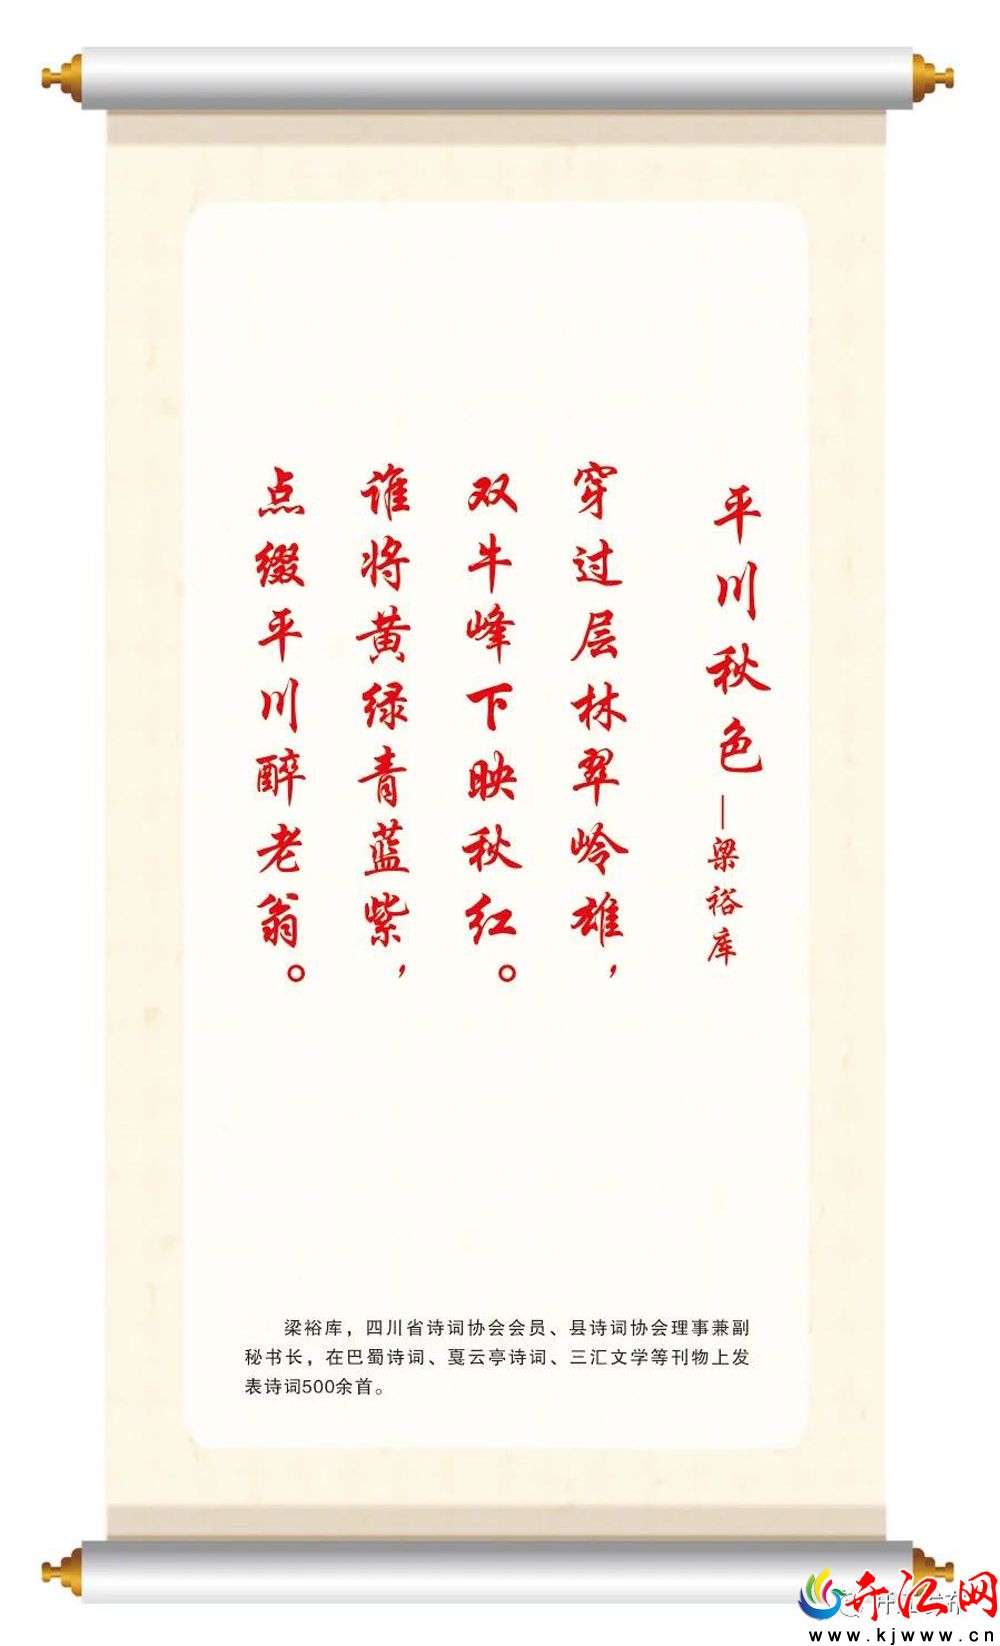 平川秋色—梁裕库
穿过层林翠岭雄，
双牛峰下映秋红。
谁将黄绿青蓝紫，
点缀平川醉老翁。
梁裕库，四川省诗词协会会员、县诗词协会理事兼副
秘书长，在巴蜀诗词、戛云亭诗词、三汇文学等刊物上发
表诗词500余首。
开江网
www.kjwww.cn